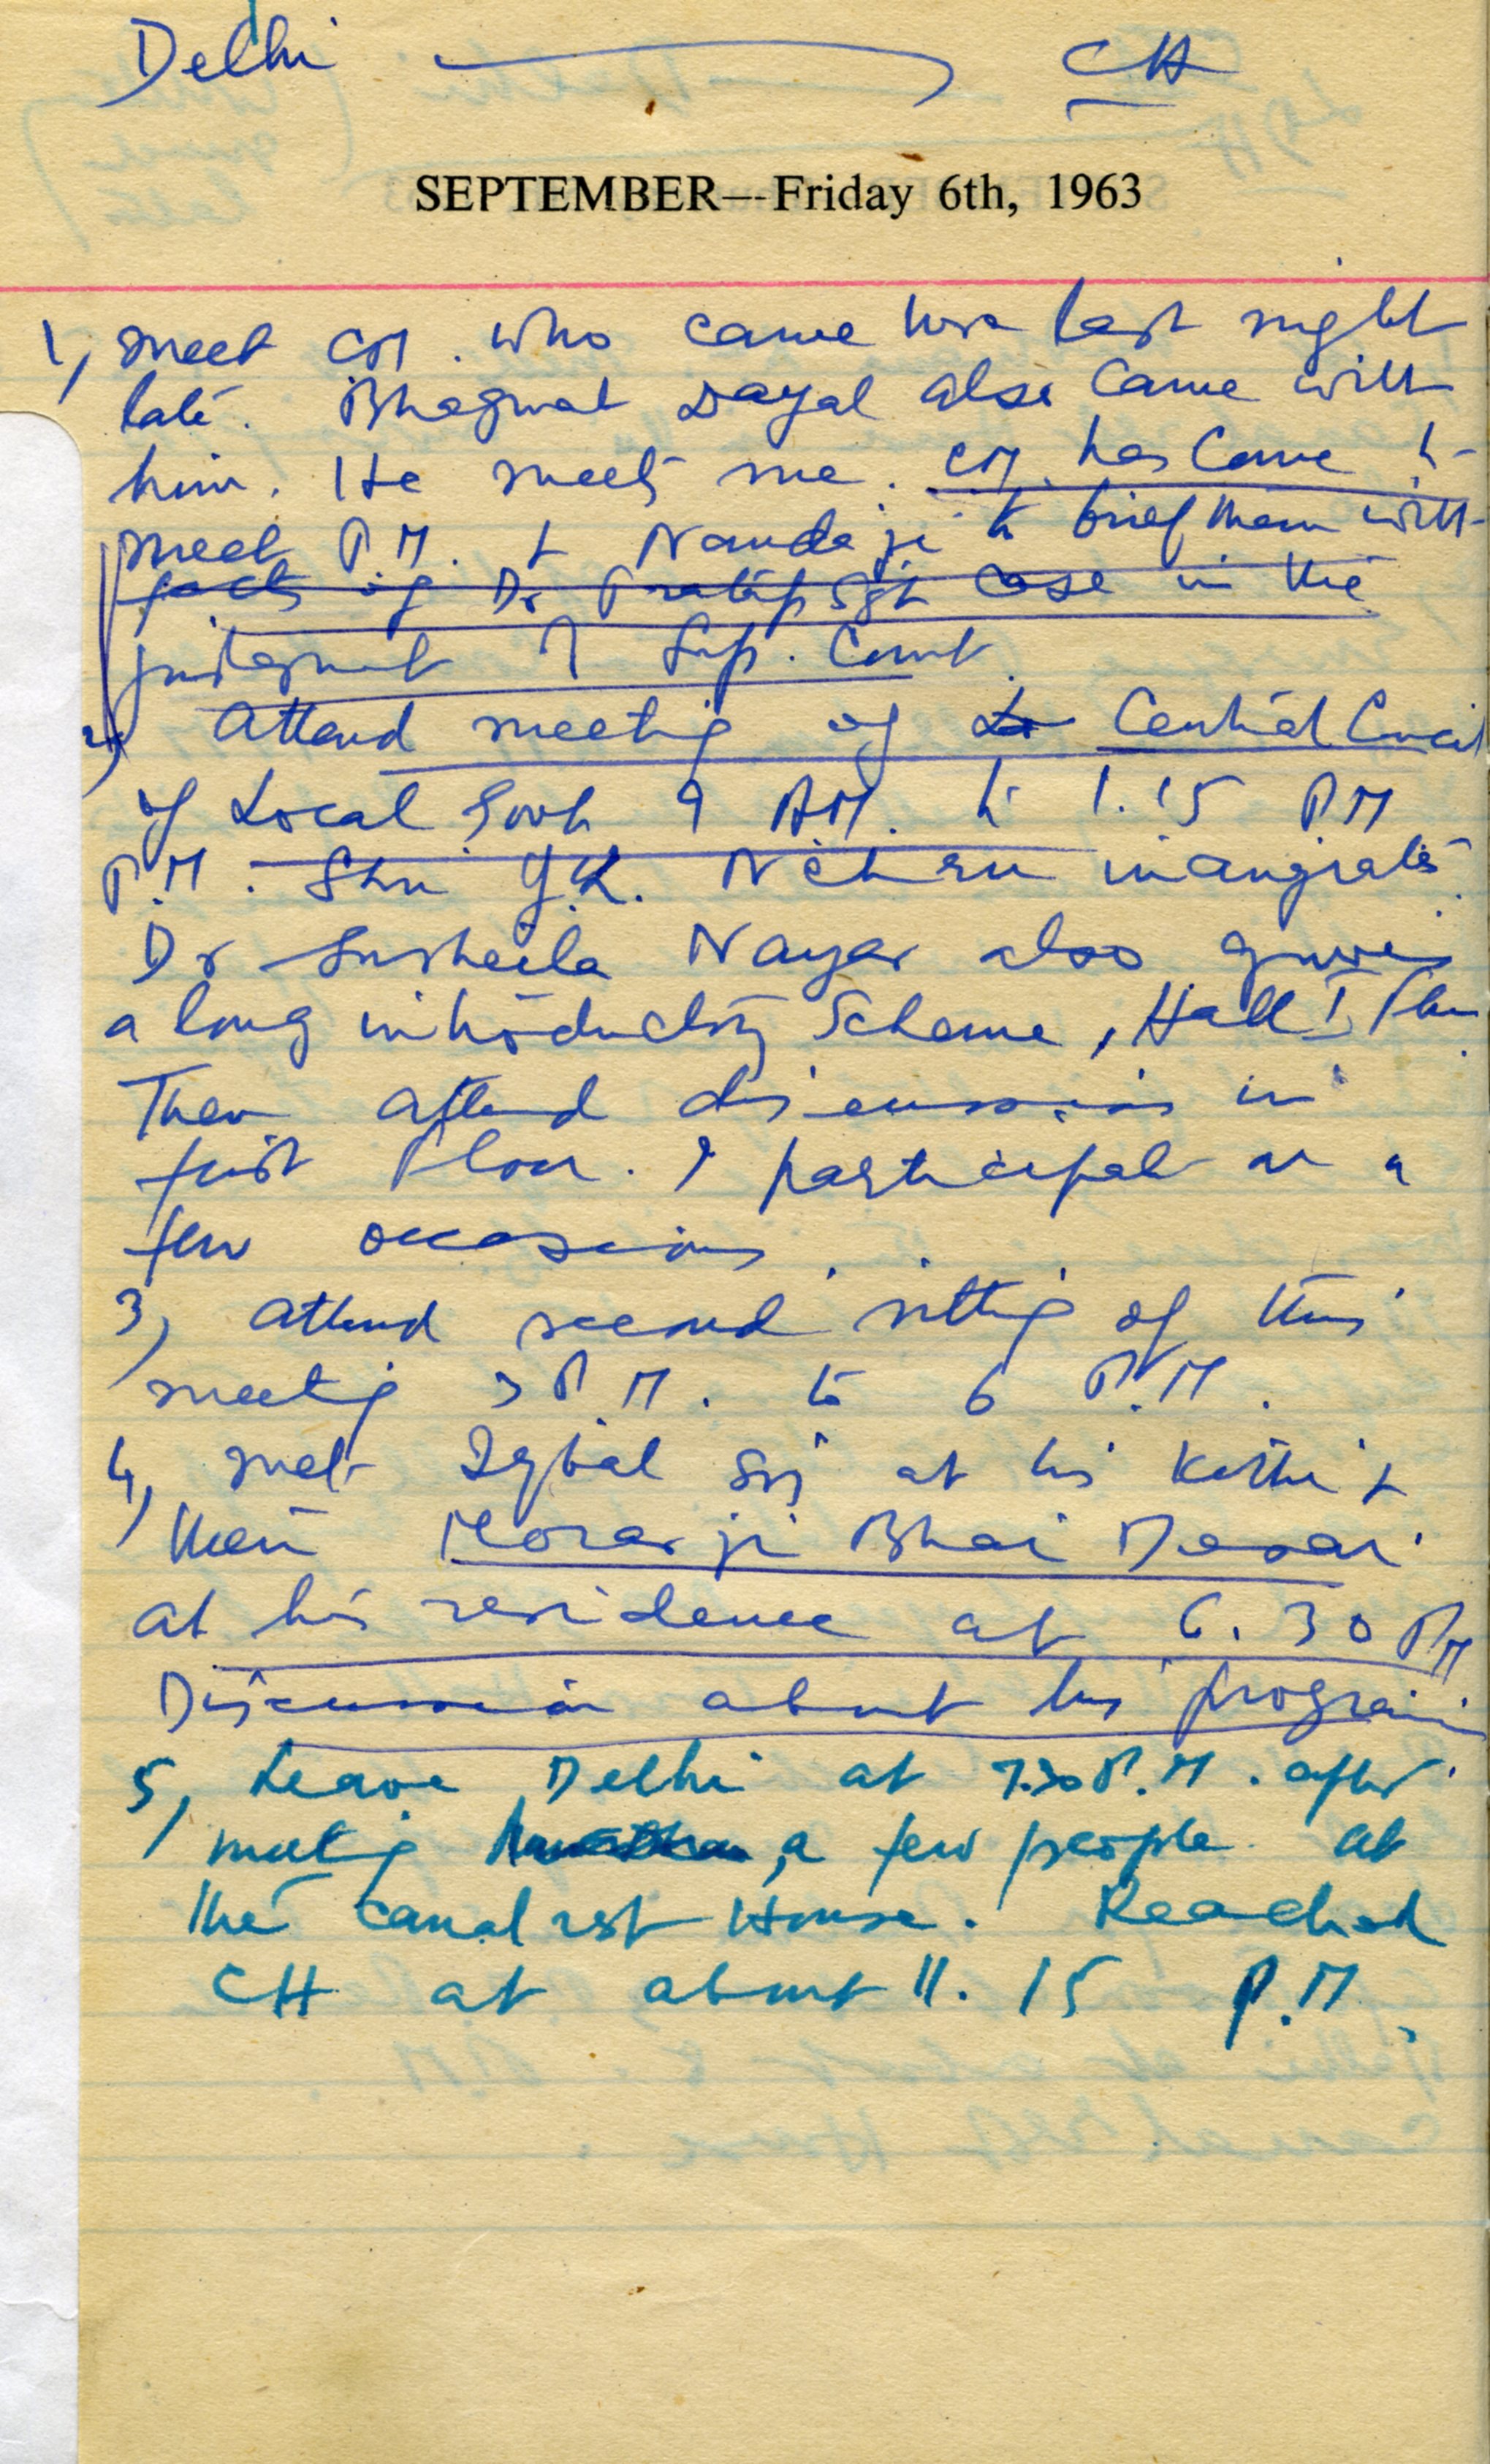 Delhi CH
SEPTEMBER—Friday 6th, 1963
1, Meet CM. who came here last night
late. Bhagwat Dayal also came with
him. He meets me. CM. has come to
meet P.M. + Nandaji to brief them with
facts of Dr Pratap Sgh case in the
judgment of Sup. Court.
2, Attend meeting of Central Council
of Local Govt 9 AM. to 1.15 PM
P.M. Shri J.L. Nehru inaugrates.
Dr Susheila Nayar also gives
a long introductory Scheme, Hall
Then attend discussion in
first floor. I participate on a
few occasions.
3, Attend second sitting of this
meeting 3 P.M. to 6 P.M.
4, Met Iqbal Sgh at his Kothi +
then Morarji Bhai Desai
at his residence at 6.30 PM
Discussion about his program
5, Leave Delhi at 7.30 P.M. after
meeting a few people at
the canal rest House. Reached
CH at about 11.15 P.M.